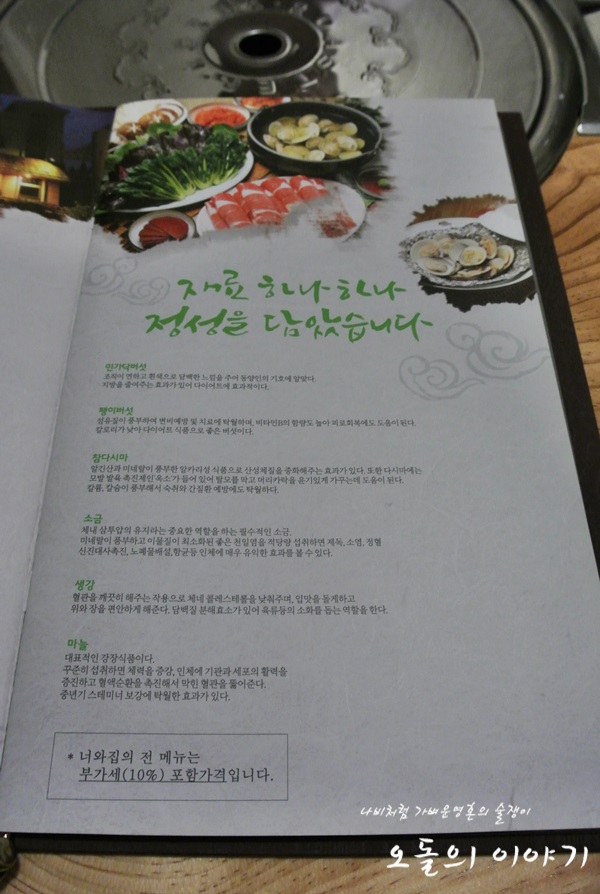 재료 하나하나
정성을 담았습니다
민가닥버섯
조직이 연하고 흰색으로 담백한 느낌을 주어 동양인의 기호에 알맞다.
지방을 줄여주는 효과가 있어 다이어트에 효과적이다.
팽이버섯
섬유질이 풍부하여 변비예방 및 치료에 탁월하며, 비타민B의 함량도 높아 피로회복에도 도움이 된다.
칼로리가 낮아 다이어트 식품으로 좋은 버섯이다.
참다시마
알긴산과 미네랄이 풍부한 알카리성 식품으로 산성체질을 중화해주는 효과가 있다. 또한 다시마에는
모발 발육 촉진제인 '옥소'가 들어 있어 탈모를 막고 머리카락을 윤기있게 가꾸는데 도움이 된다.
칼륨, 칼슘이 풍부해서 숙취와 간질환 예방에도 탁월하다.
소금
체내 삼투압의 유지라는 중요한 역할을 하는 필수적인 소금.
미네랄이 풍부하고 이물질이 최소화된 좋은 천일염을 적당량 섭취하면 체독, 소염, 정혈
신진대사촉진, 노폐물배설, 항균등 인체에 매우 유익한 효과를 볼 수 있다.
생강
혈관을 깨끗히 해주는 작용으로 체네 콜레스테롤을 낮춰주며, 입맛을 돋게하고
위와 장을 편안하게 해준다. 단백질 분해효소가 있어 육류등의 소화를 돕는 역할을 한다.
마늘
대표적인 강장식품이다.
꾸준히 섭취하면 체력을 증강, 인체에 기관과 세포의 활력을
증진하고 혈액순환을 촉진해서 막힌 혈관을 뚫어준다.
중년기 스테미너 보강에 탁월한 효과가 있다.
* 너와집의 전 메뉴는
부가세(10%) 포함가격입니다.
나비처럼 가벼운영혼의 술쟁이
오돌의 이야기